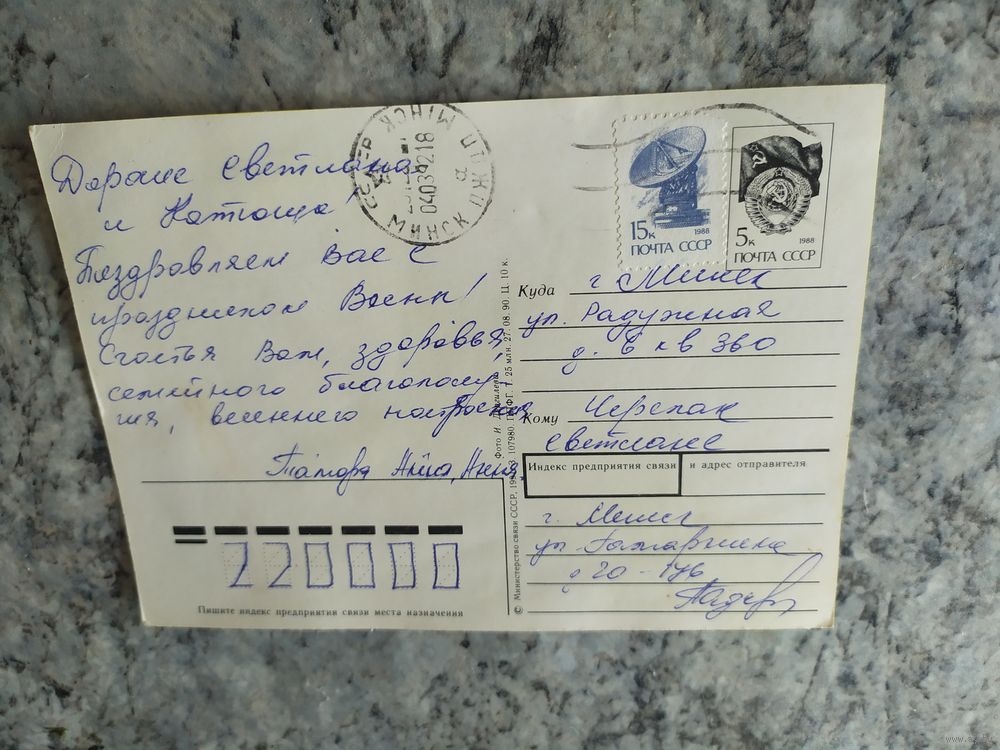 Дорогие Светлана
и Наташа!
Поздравляем Вас с
праздником Весны!
Счастья Вам, здоровья,
семейного благополу-
чия, весеннего настроения
Тамара, Анна,
МИНСК ПЖДП
а
МИНСК
15к 1988
ПОЧТА СССР
5к 1988
ПОЧТА СССР
Куда г. Минск
ул. Радужная
д. 6 кв 360
Кому Черепан
Светлане
Индекс предприятия связи и адрес отправителя
г. Минск
ул
220000
Пишите индекс предприятия связи места назначения
© Министерство связи СССР, 107980. 25 млн. 27. 08. 90. Ц. 10 к.
Фото И.